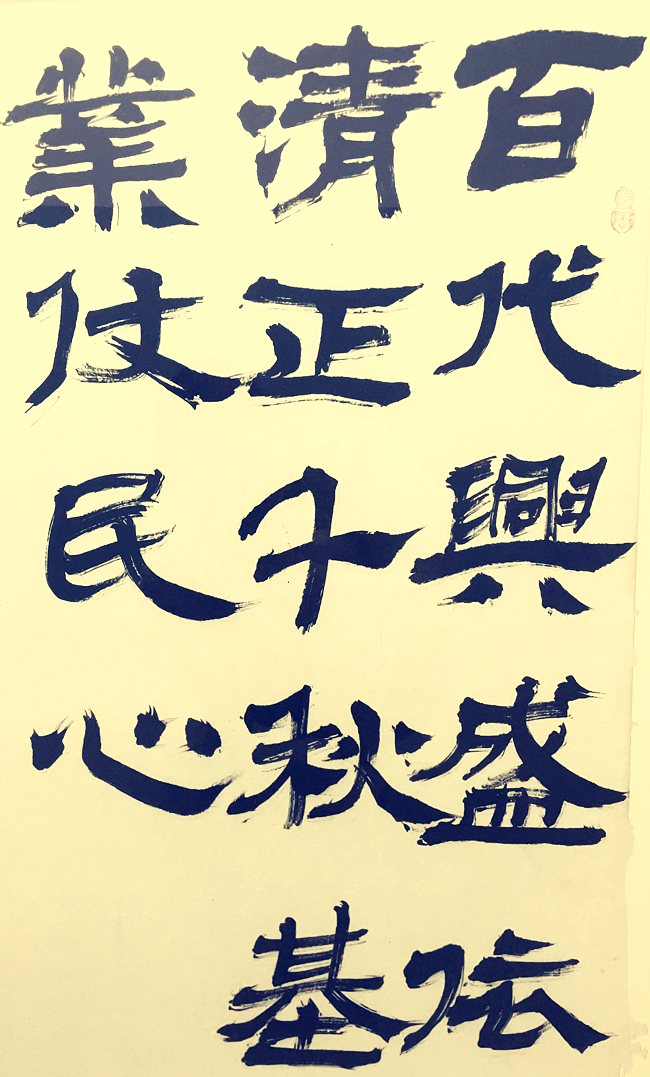 百代興盛依
清正千秋基
業仗民心